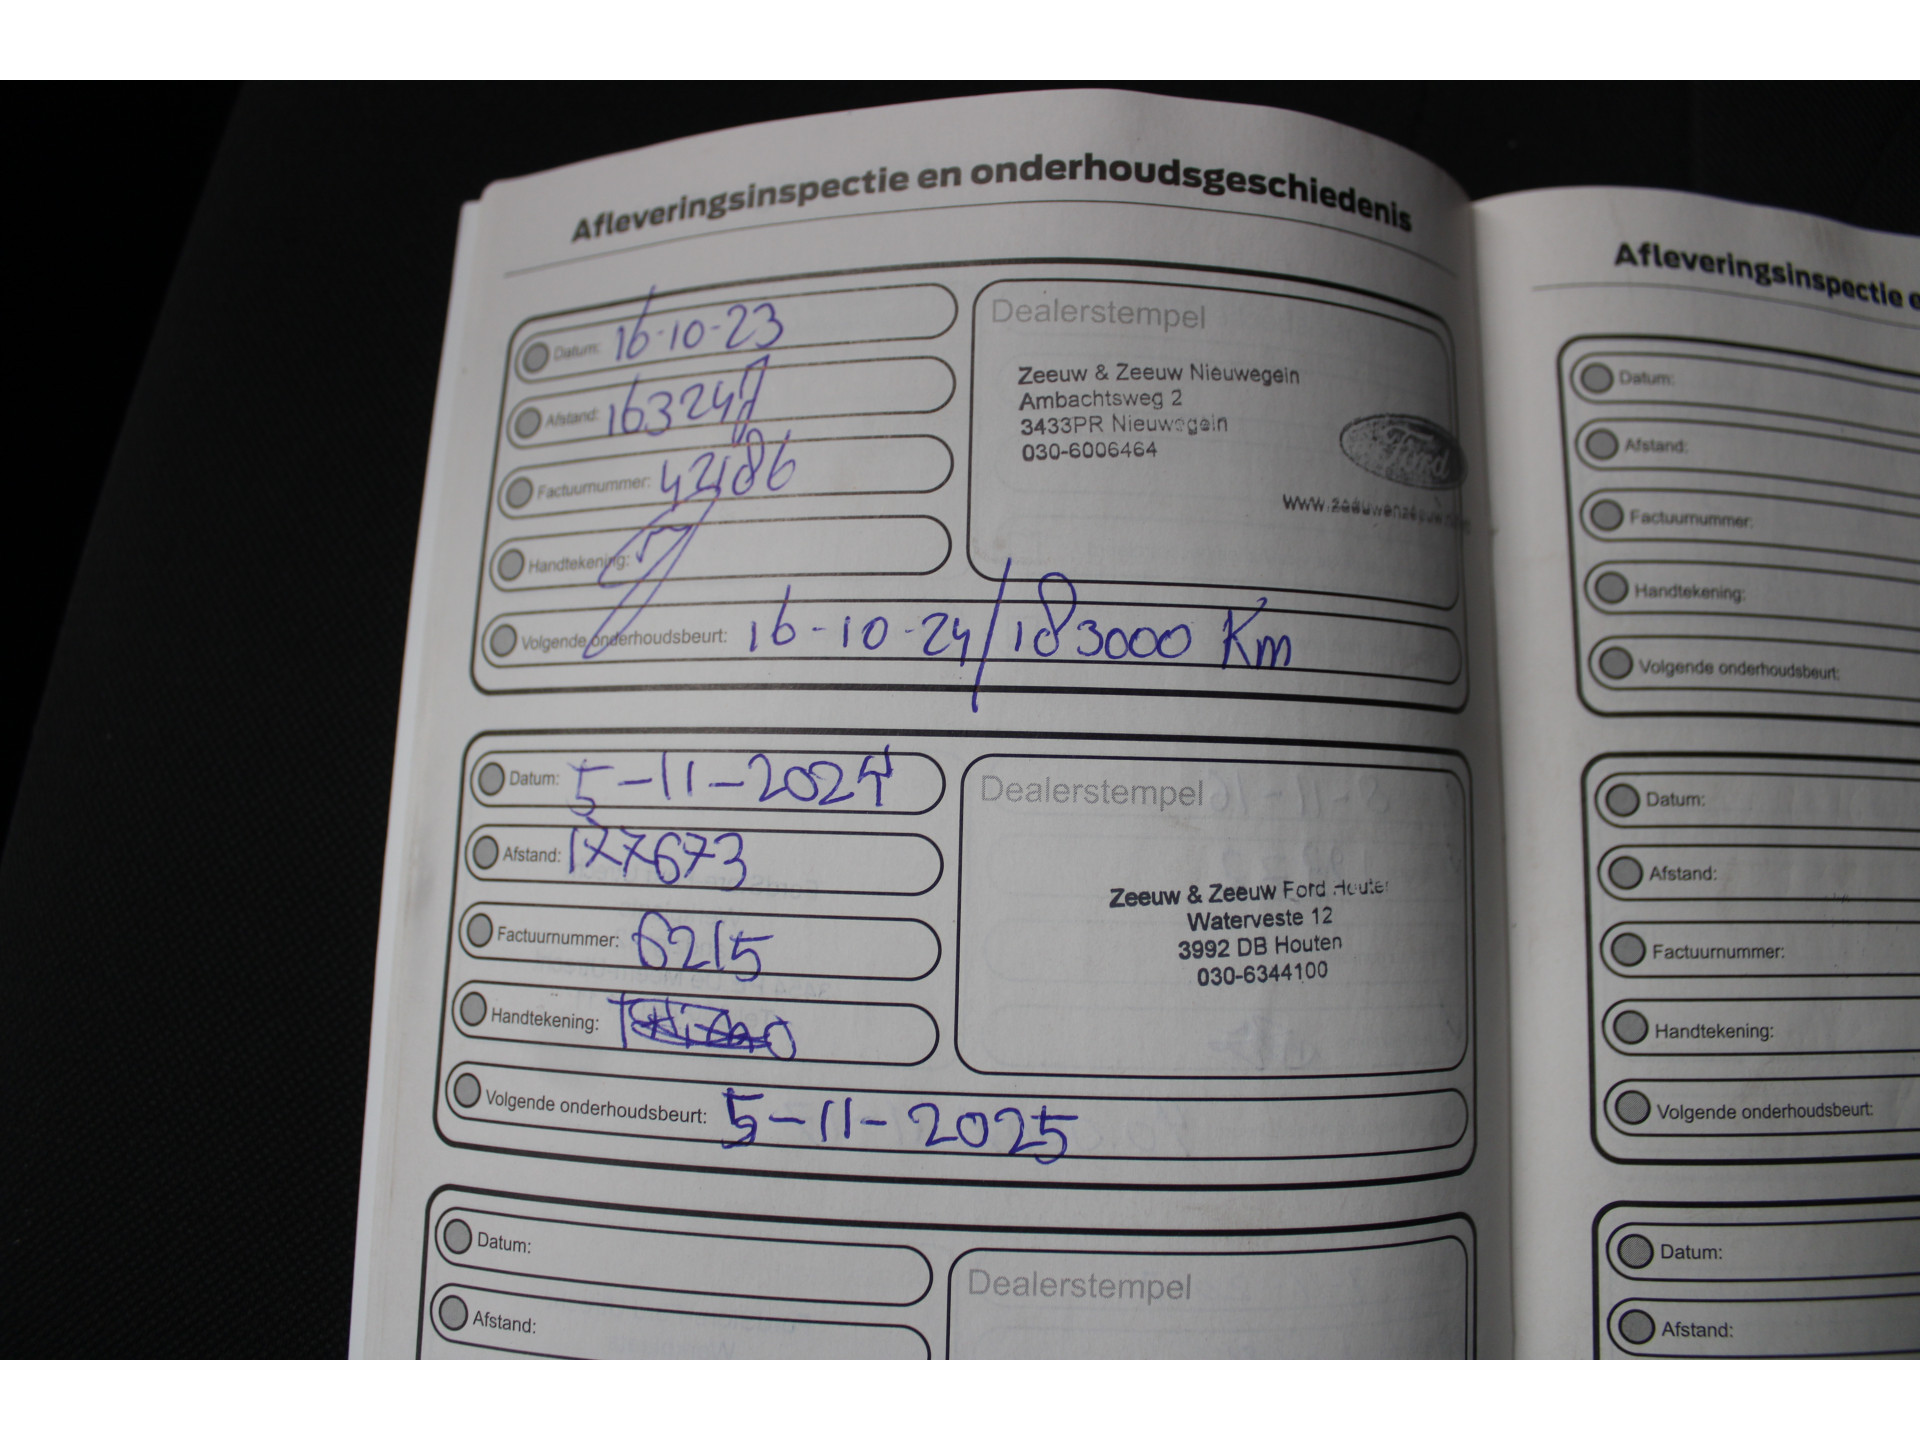 Afleveringsinspectie en onderhoudsgeschiedenis
Datum: 16-10-23
Afstand:
Factuurnummer: 42186
Handtekening:
Volgende onderhoudsbeurt: 16-10-24/183000 Km
Dealerstempel
Zeeuw & Zeeuw Nieuwegein
Ambachtsweg 2
3433PR Nieuwegein
030-6006464
Ford
Datum: 5-11-2024
Afstand: 177673
Factuurnummer: 6215
Handtekening:
Volgende onderhoudsbeurt: 5-11-2025
Dealerstempel
Zeeuw & Zeeuw Ford
Waterveste 12
3992 DB Houten
030-6344100
Datum:
Afstand:
Dealerstempel
Afleveringsinspectie
Datum:
Afstand:
Factuurnummer:
Handtekening:
Volgende onderhoudsbeurt:
Datum:
Afstand:
Factuurnummer:
Handtekening:
Volgende onderhoudsbeurt:
Datum:
Afstand: